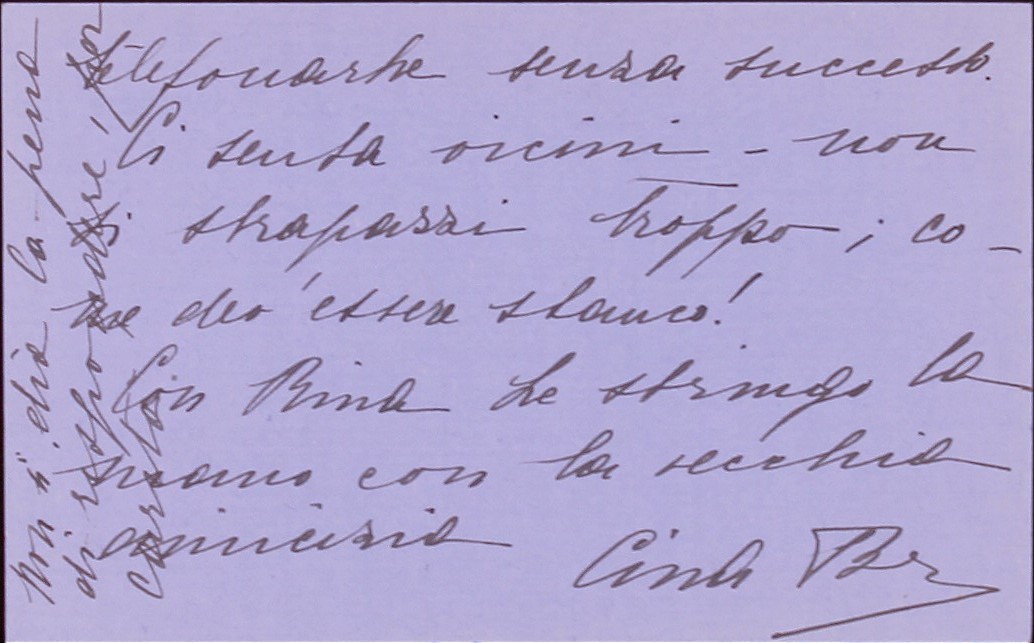 telefonarLe senza successo.
Ci senta vicini - non
si strapazzi troppo; co-
me dev'essere stanco!
Con Bina Le stringo la
mano con la vecchia
amicizia
Non si dia la pena
di rispondere,